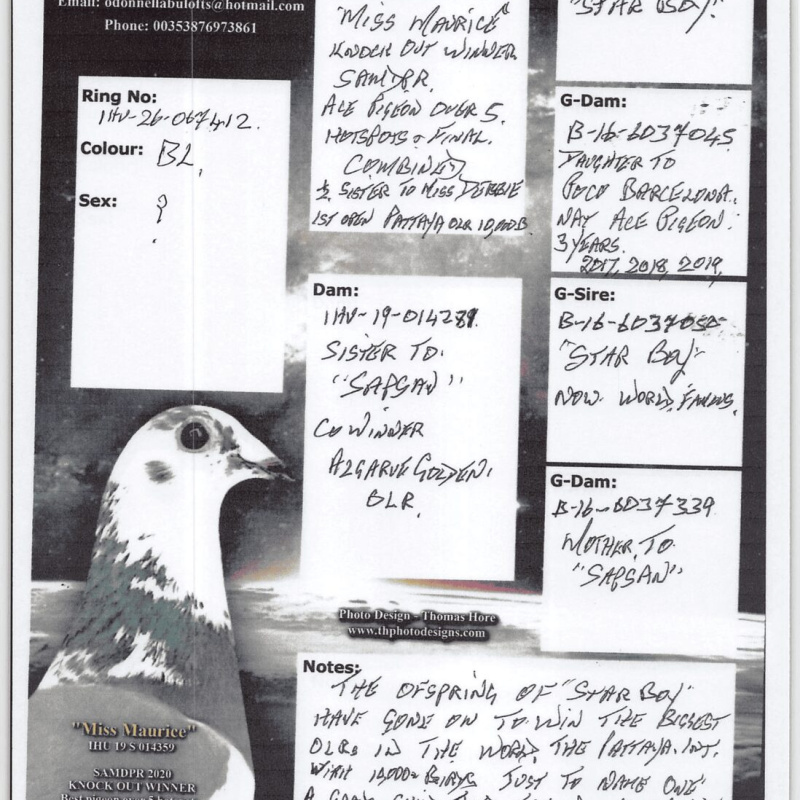 Email: odonnellabulofts@hotmail.com
Phone: 00353876973861
"MISS MAURICE"
KNOCK OUT WINNER
SAMDPR.
ACE PIGEON OVER 5.
HOTSPOTS & FINAL.
COMBINED
½ SISTER TO MISS DEBBIE
1ST OPEN PATTAYA OLR 10,000B
"STAR BOY".
Ring No:
IHU-26-067412.
Colour: BL.
Sex: ?
G-Dam:
B-16-6037045
DAUGHTER TO
POCO BARCELONA.
NAT ACE PIGEON.
3 YEARS.
2017, 2018, 2019,
Dam:
IHU-19-014281.
SISTER TO.
"SAFSAN"
CO WINNER
ALGARVE GOLDEN.
OLR.
G-Sire:
B-16-6037050
"STAR BOY"
NOW WORLD FAMOUS.
G-Dam:
B-16-6037339
MOTHER TO
"SAFSAN"
Photo Design - Thomas Hore
www.thphotodesigns.com
"Miss Maurice"
IHU 19 S 014359
SAMDPR 2020
KNOCK OUT WINNER
Best pigeon over 5
Notes:
THE OFSPRING OF "STAR BOY"
HAVE GONE ON TO WIN THE BIGGEST
OLRs IN THE WORLD. THE PATTAYA. INT.
WITH 10,000+ BIRDS JUST TO NAME ONE.